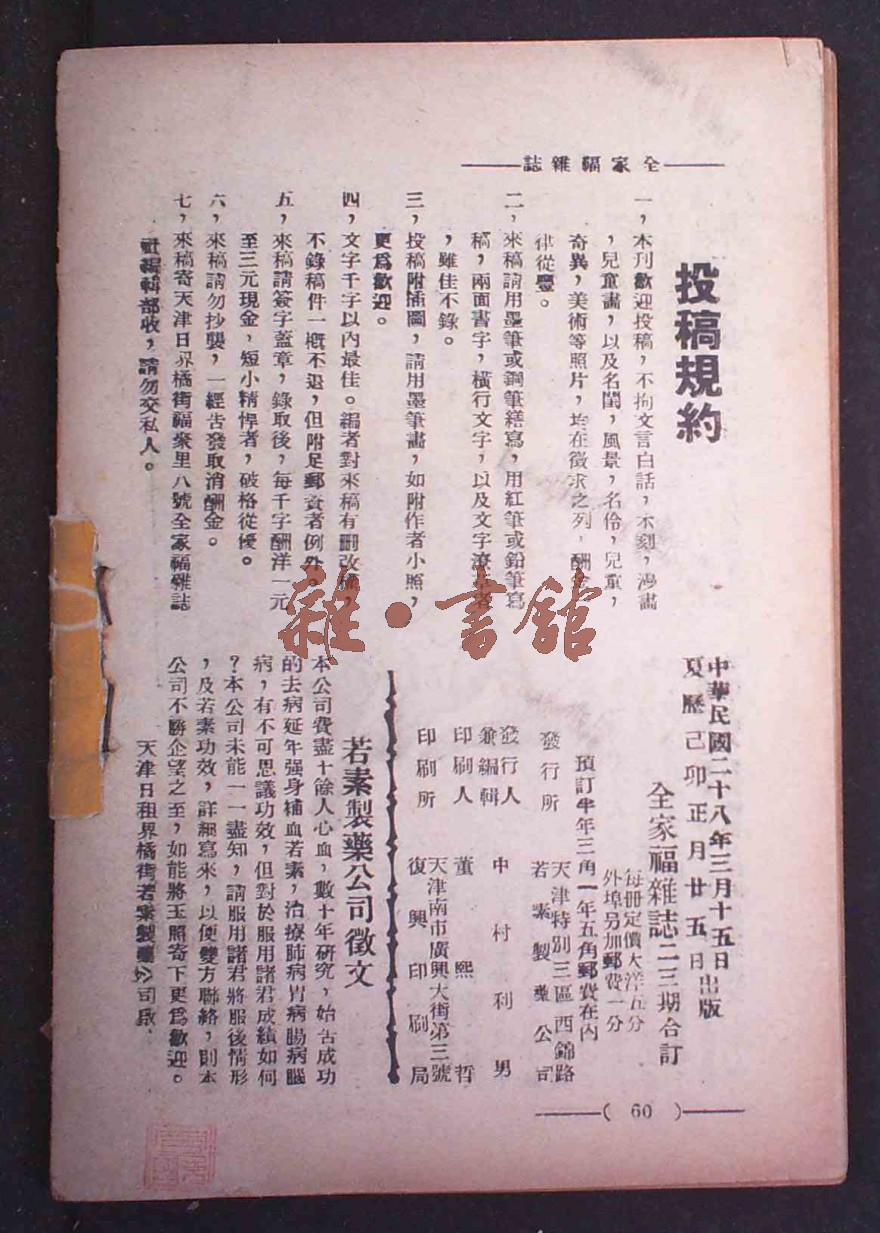 全家福雜誌
投稿規約
一，本刊歡迎投稿，不拘文言白話，木刻，漫畫
，兒童畫，以及名閨，風景，名伶，兒童，
奇異，美術等照片，均在徵求之列，酬金
律從豐。
二，來稿請用墨筆或鋼筆繕寫，用紅筆或鉛筆寫
稿，兩面書字，橫行文字，以及文字潦草者
，雖佳不錄。
三，投稿附插圖，請用墨筆畫，如附作者小照，
更爲歡迎。
四，文字千字以內最佳。編者對來稿有刪改權，
不錄稿件一概不退，但附足郵資者例外。
五，來稿請簽字蓋章，錄取後，每千字酬洋一元
至三元現金，短小精悍者，破格從優。
六，來稿請勿抄襲，一經告發取消酬金。
七，來稿寄天津日界橋街福衆里八號全家福雜誌
社編輯部收，請勿交私人。
中華民國二十八年三月十五日出版
夏歷己卯正月廿五日
全家福雜誌二三期合訂
每冊定價大洋五分
外埠另加郵費一分
預訂半年三角一年五角郵費在內
發行所
天津特別三區西錦路
若素製藥公司
發行人
兼編輯
中村利男
印刷人
董熙哲
天津南市廣興大街第三號
印刷所
復興印刷局
若素製藥公司徵文
本公司費盡十餘人心血，數十年研究，始告成功
的去病延年强身補血若素，治療肺病胃病腸病腦
病，有不可思議功效，但對於服用諸君成績如何
？本公司未能一一盡知，請服用諸君將服後情形
，及若素功效，詳細寫來，以便雙方聯絡，則本
公司不勝企望之至，如能將玉照寄下更爲歡迎。
天津日租界橋街若素製藥公司啟．
( 60 )
雜·書館